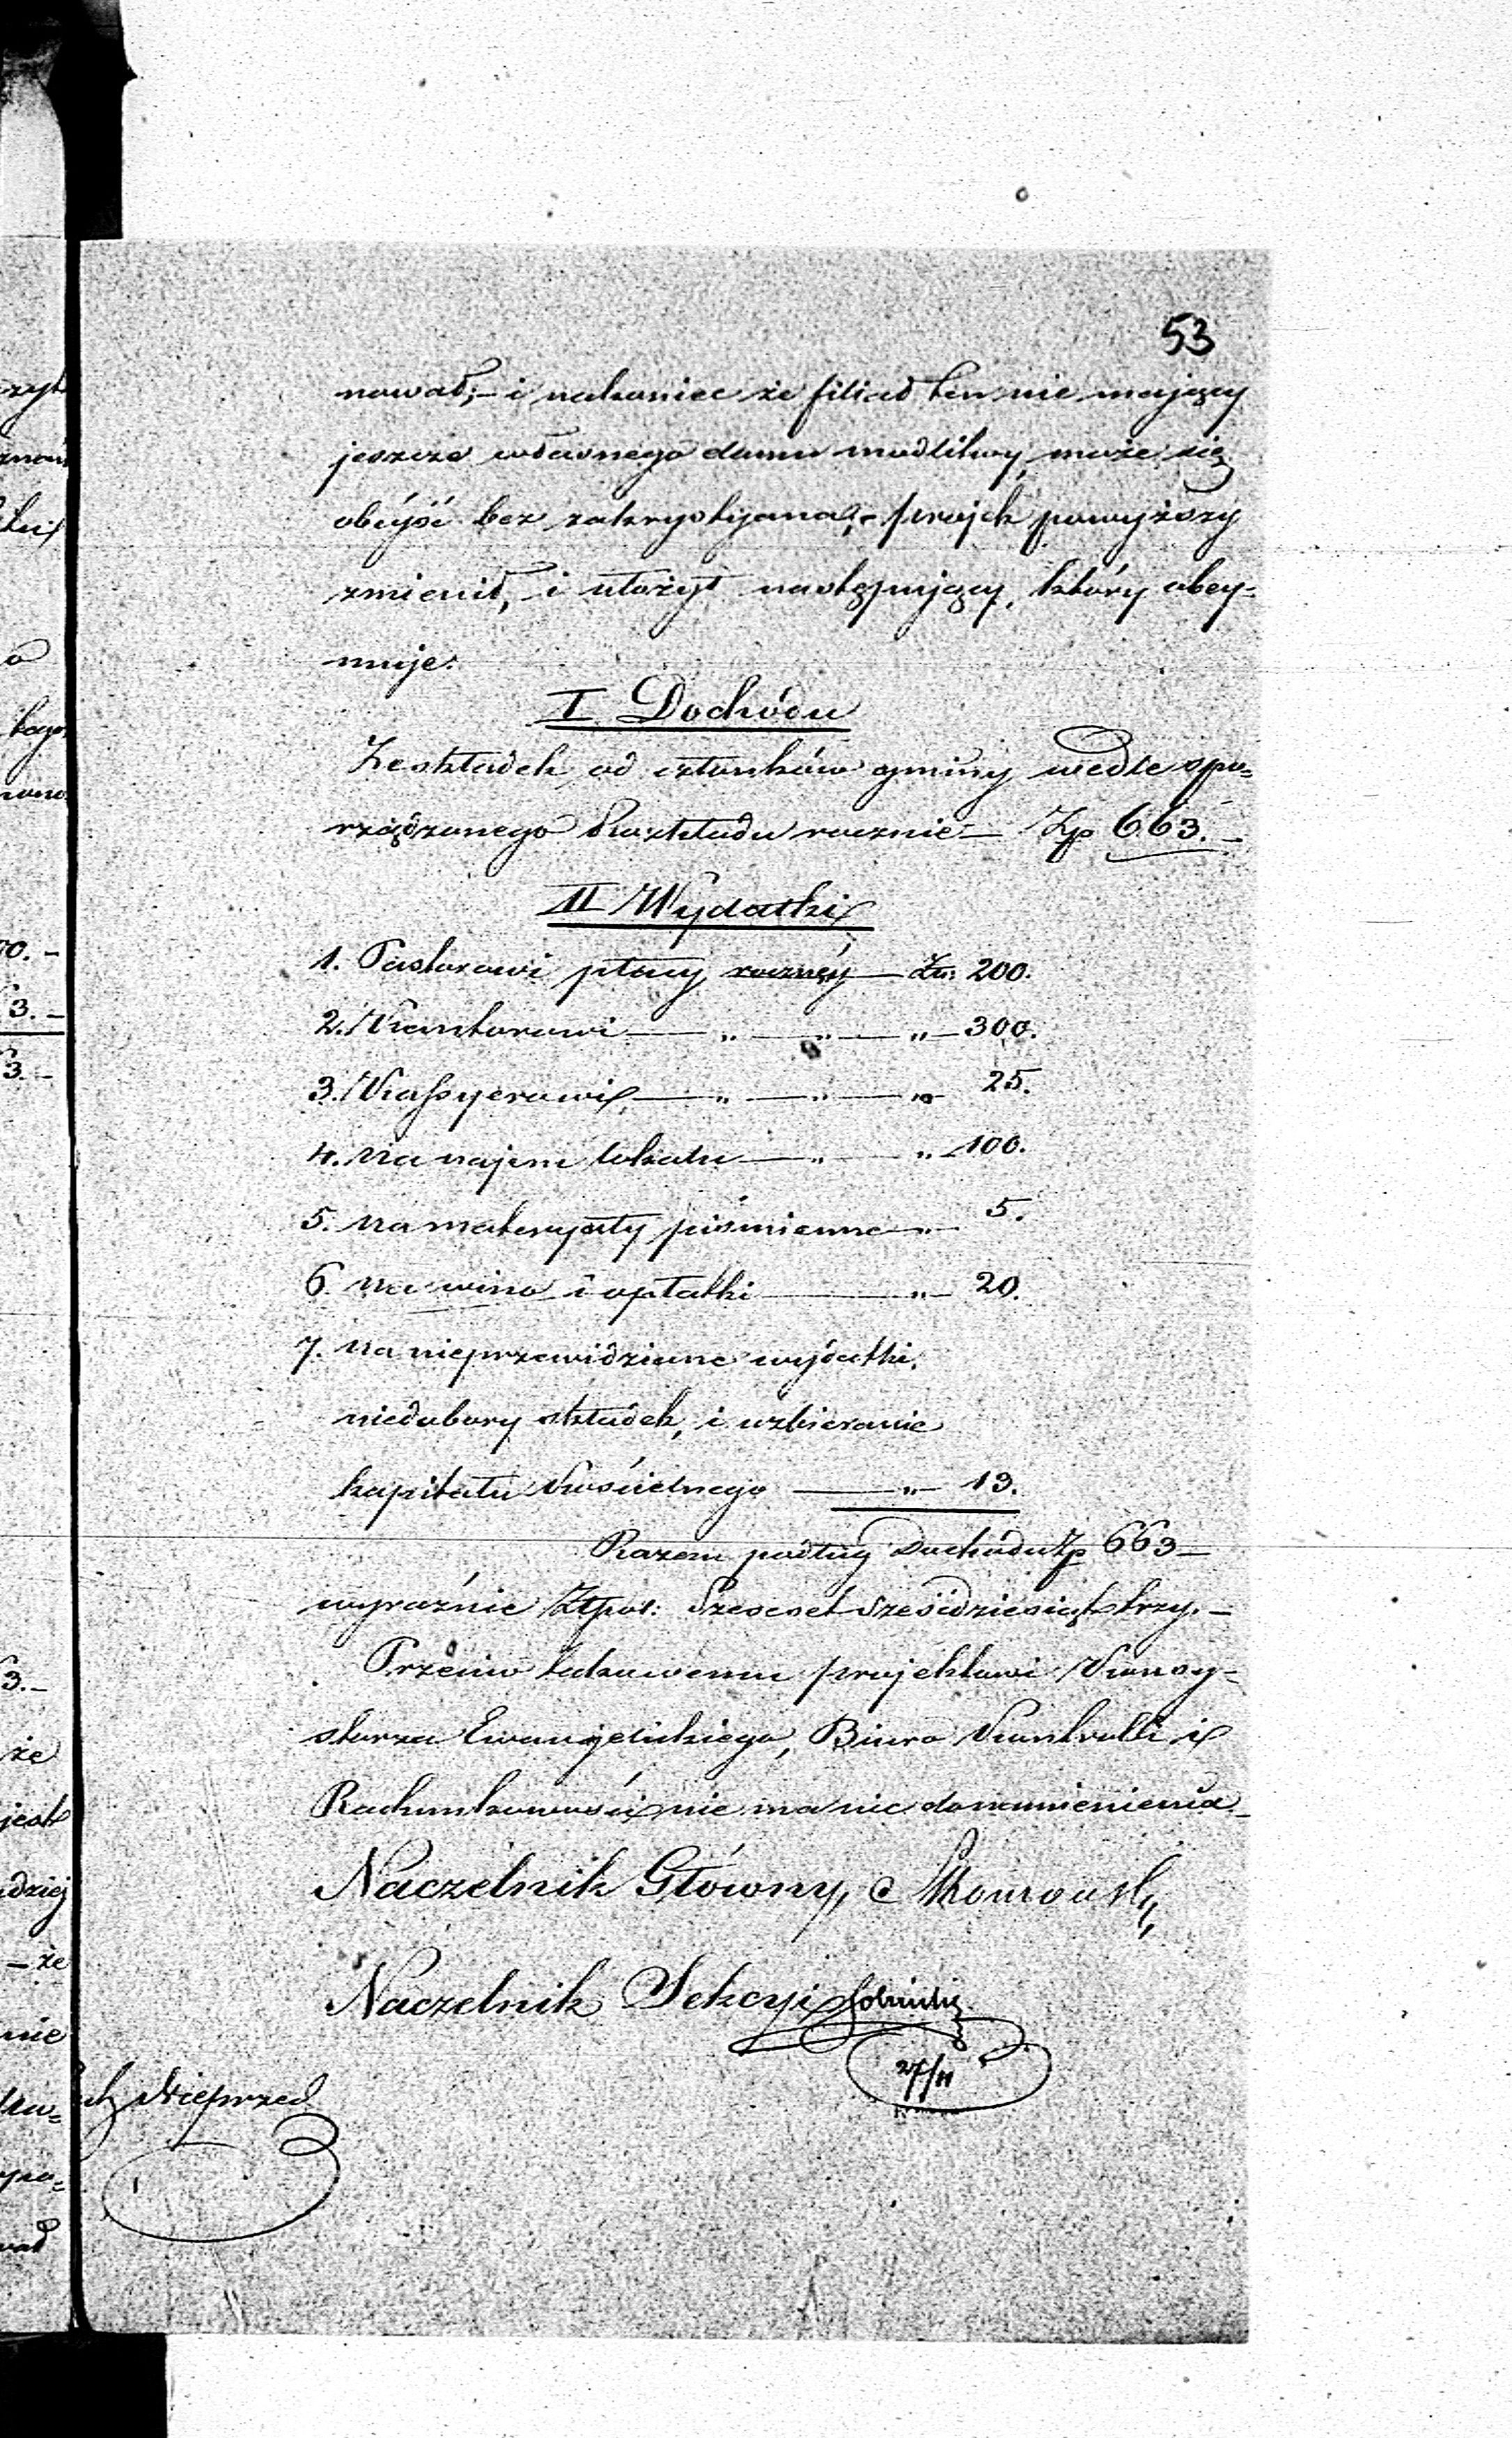 53
nował; – i nakoniec że filiał ten nie mający
jeszcze własnego domu modlitwy, może się
obeyść bez zakrystyana, – projekt powyższy
zmienił, i ułożył następujący, który obey-
muje:
I Dochódu
Ze składek od członków gminy wedle spo-
rządzonego Rozkładu rocznie – Złp 663. –
II Wydatki
1. Pastorowi płacy roczney – Złp 200.
2. Kantorowi — „ — „ — „ — 300.
3. Kassyerowi — „ — „ — „ 25.
4. Na najem lokalu — „ — „ — 100.
5. na materyały piśmienne — „ — 5.
6. na wino i opłatki — „ — 20.
7. na nieprzewidziane wydatki,
niedobory składek, i uzbieranie
kapitału Kościelnego — „ — 13.
Razem podług Dochodu Złp 663 –
wyraźnie Złpol: Sześćset Sześćdziesiąt trzy. –
Przeciw takowemu projektowi Konsy-
storza Ewanjelickiego, Biuro Kontrolli i
Rachunkowości nie ma nic do namienienia –
Naczelnik Główny,
Naczelnik Sekcyi
27/11